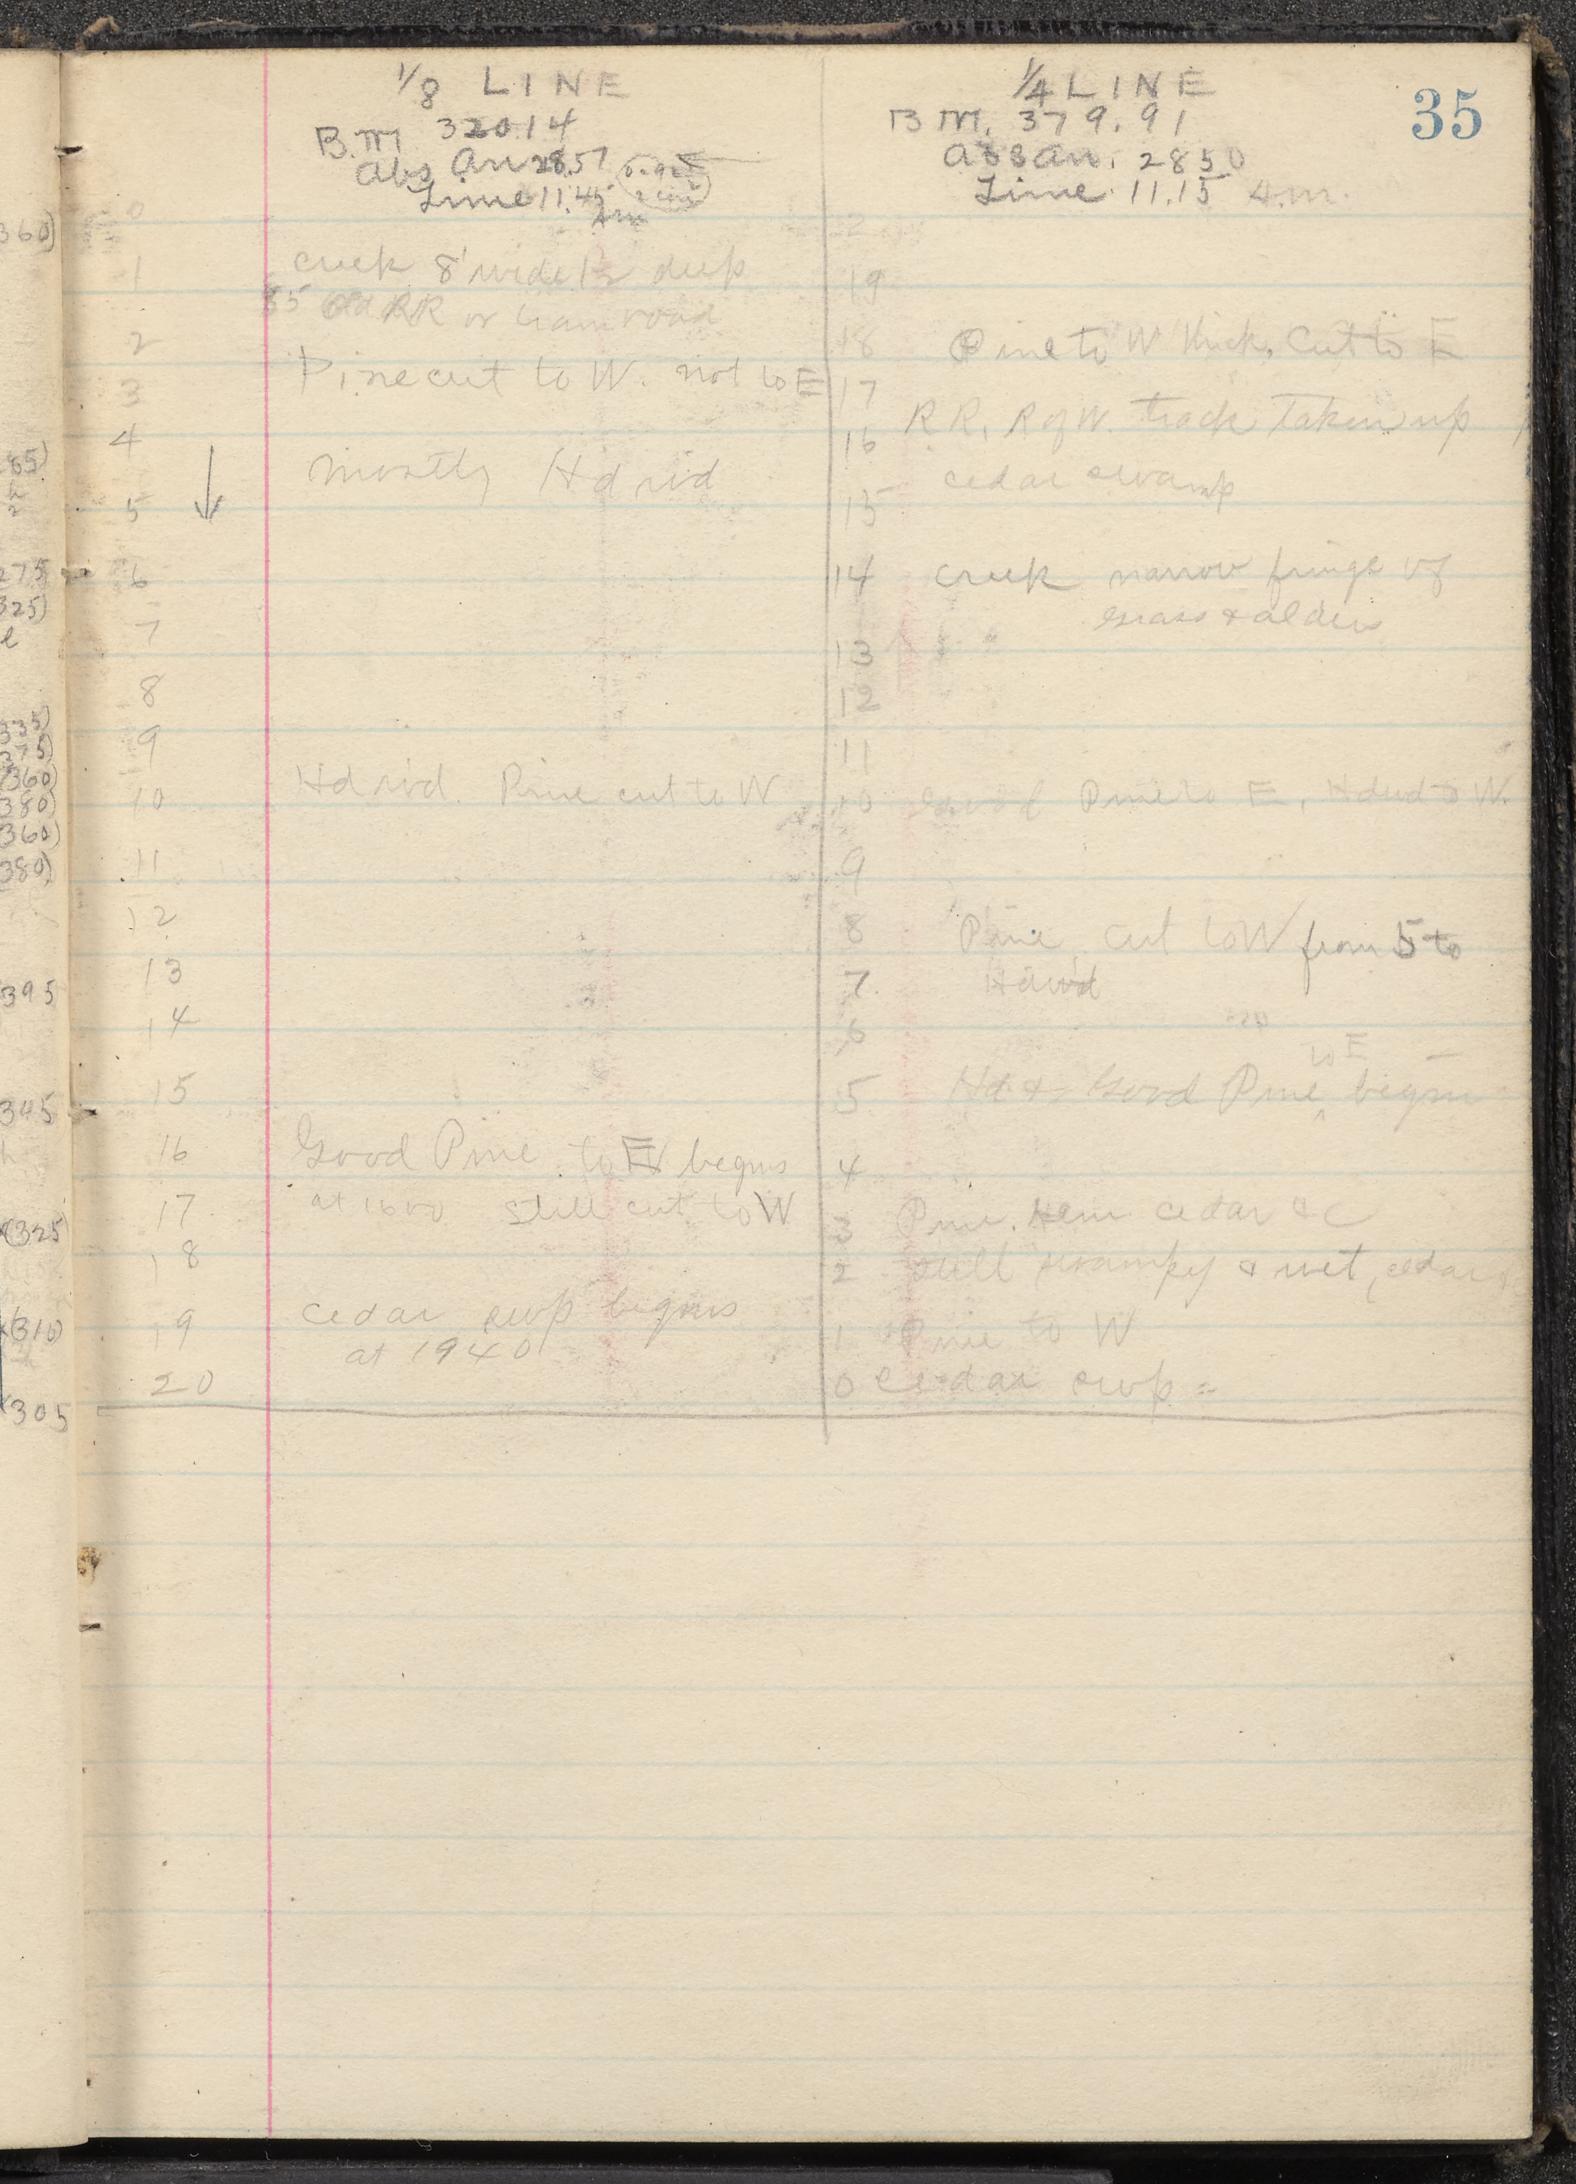 35
1/8 LINE
B.M. 320.14
Abs An 28.57
Time 11.45 Am
0
1 Creek 8' wide 1 1/2 deep
55 Old RR or tram road
2
3 Pine cut to W. not to E
4
5 mostly Hd wd
6
7
8
9
10 Hd wd. Pine cut to W
11
12
13
14
15
16 Good Pine to E begins
17 at 1600 still cut to W
18
19 cedar swp begins
at 1940
20
1/4 LINE
B M. 379.91
Abs An. 28.50
Time 11.15 A.m.
19
18 Pine to W thick. Cut to E
17
16 R R. R of W. track taken up
15 cedar swamp
14 creek narrow fringe of
grass & alders
13 " "
12
11
10 Good Pine to E, Hdwd to W.
9
8 Pine cut to W from 5 to
7. Hdwd
6
to E
5 Hd & Good Pine ^ begin
4
3 Pine. Hem cedar &c
2 still swampy & wet, cedar
1 Pine to W
0 Cedar swp
360)
85)
275
325)
335)
375)
(360)
380)
360)
380)
395
345
(325)
(310)
(305